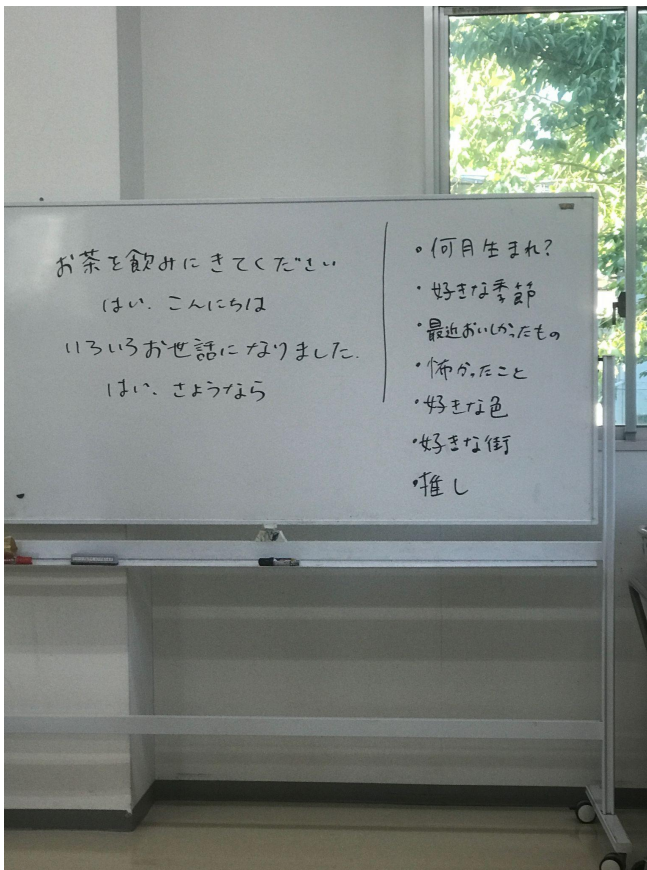 お茶を飲みにきてください
はい、こんにちは
いろいろお世話になりました.
はい、さようなら
・何月生まれ?
・好きな季節
・最近おいしかったもの
・怖かったこと
・好きな色
・好きな街
・推し